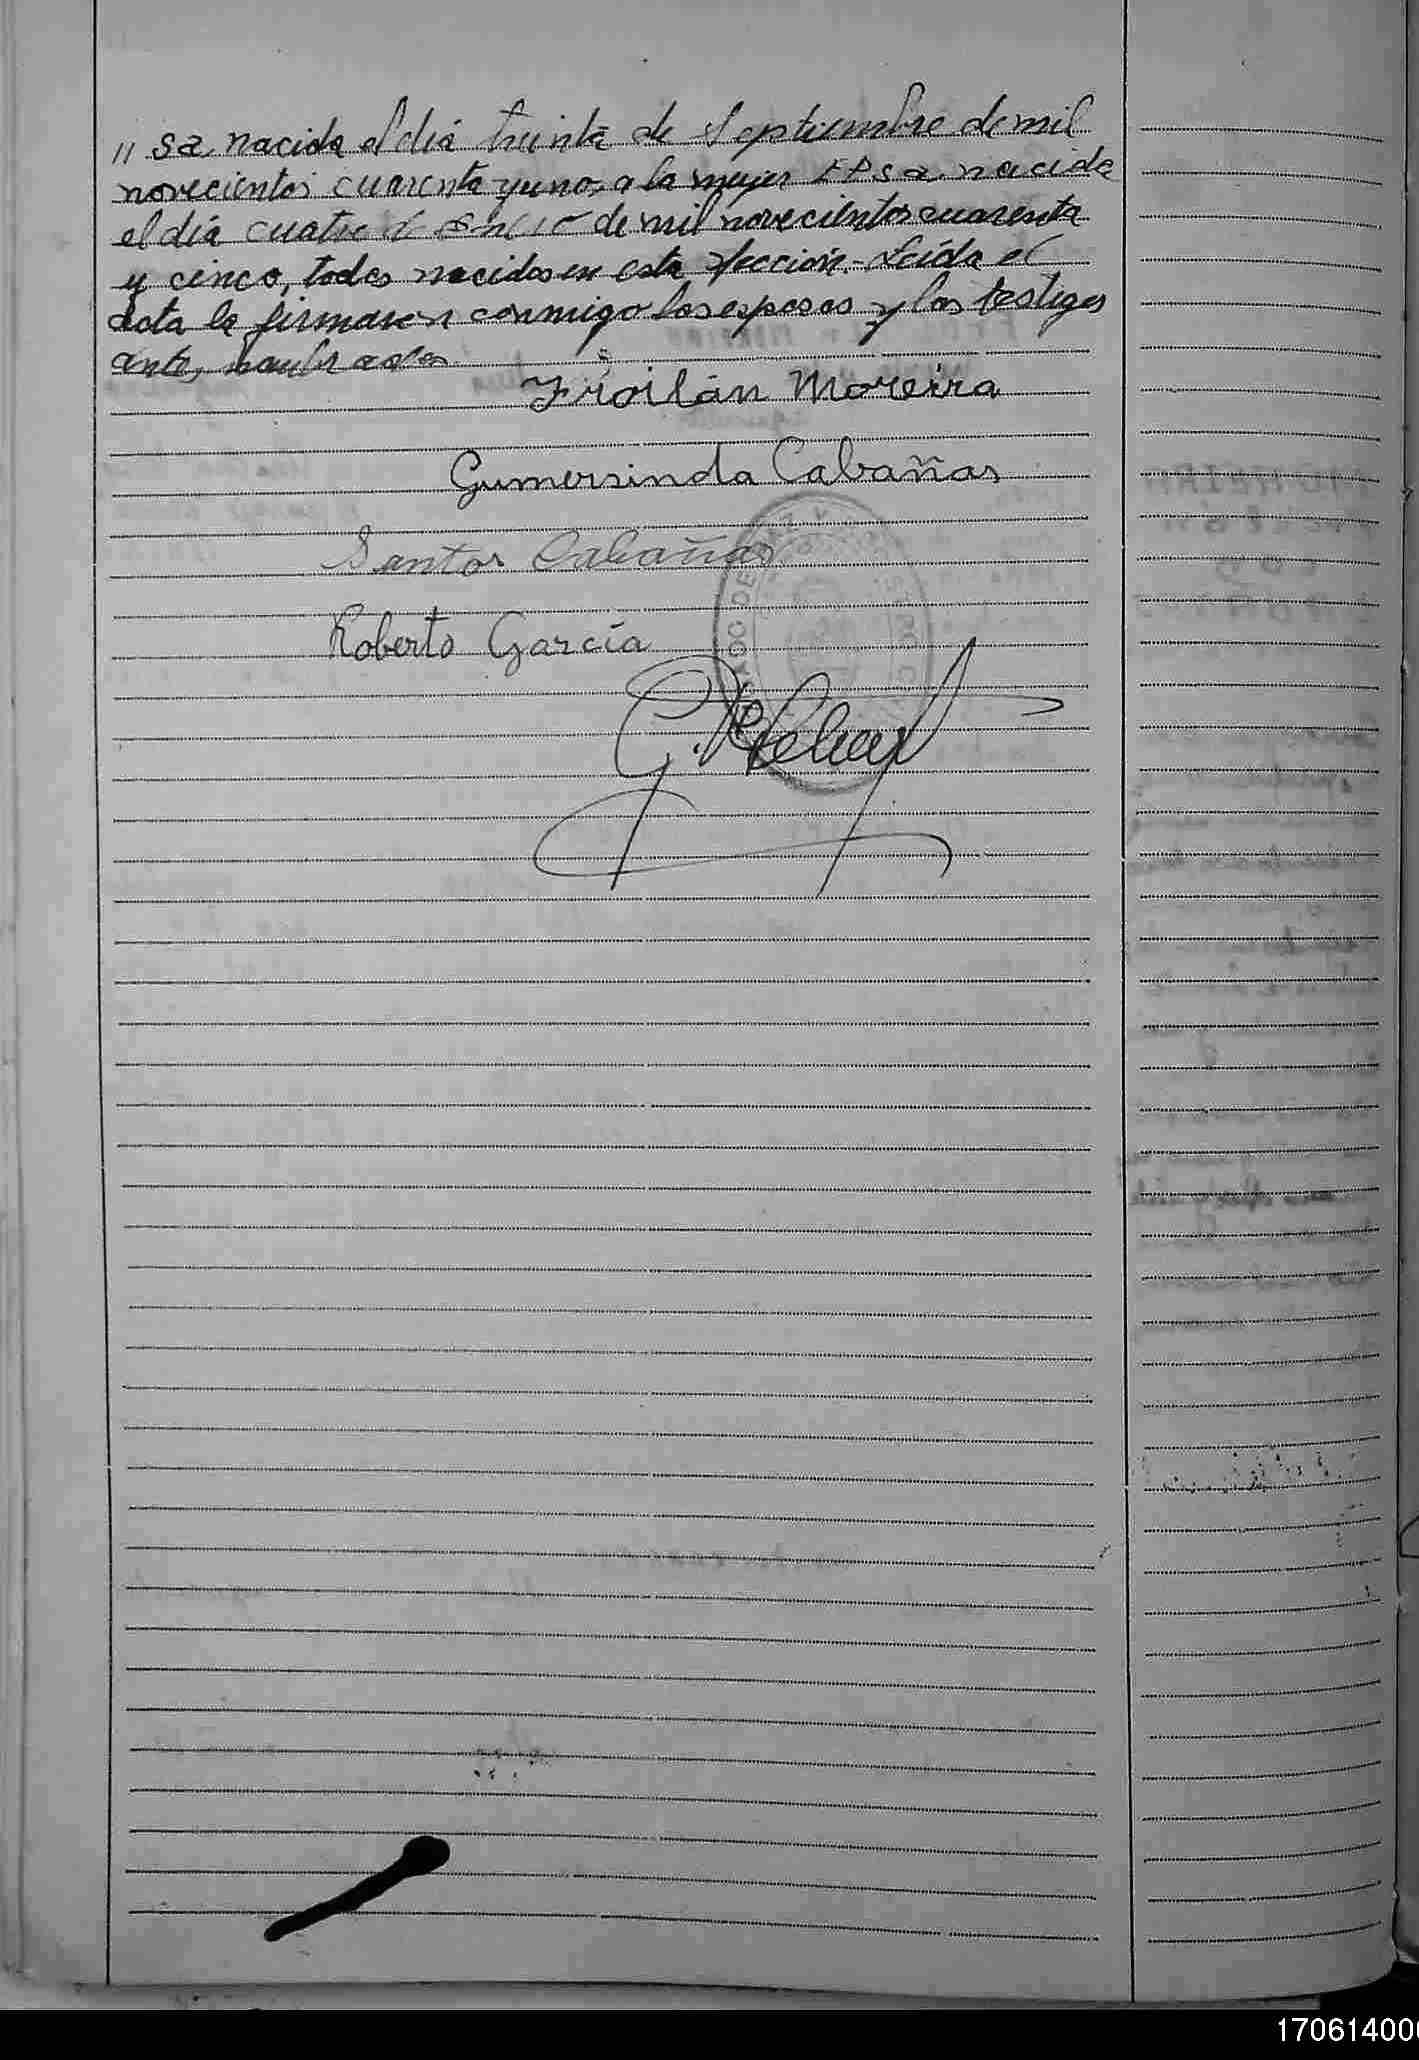 " sa, nacida el día treinta de Septiembre de mil
novecientos cuarenta y uno, a la mujer nacida
el día cuatro de de mil novecientos cuarenta
y cinco, todos nacidos en esta Sección.- Leída el
acta la firmaron conmigo los esposos y los testigos
ante, nombrados.
Froilán Moreira
Gumersinda Cabañas
Santos Cabañas
Roberto García
170614000